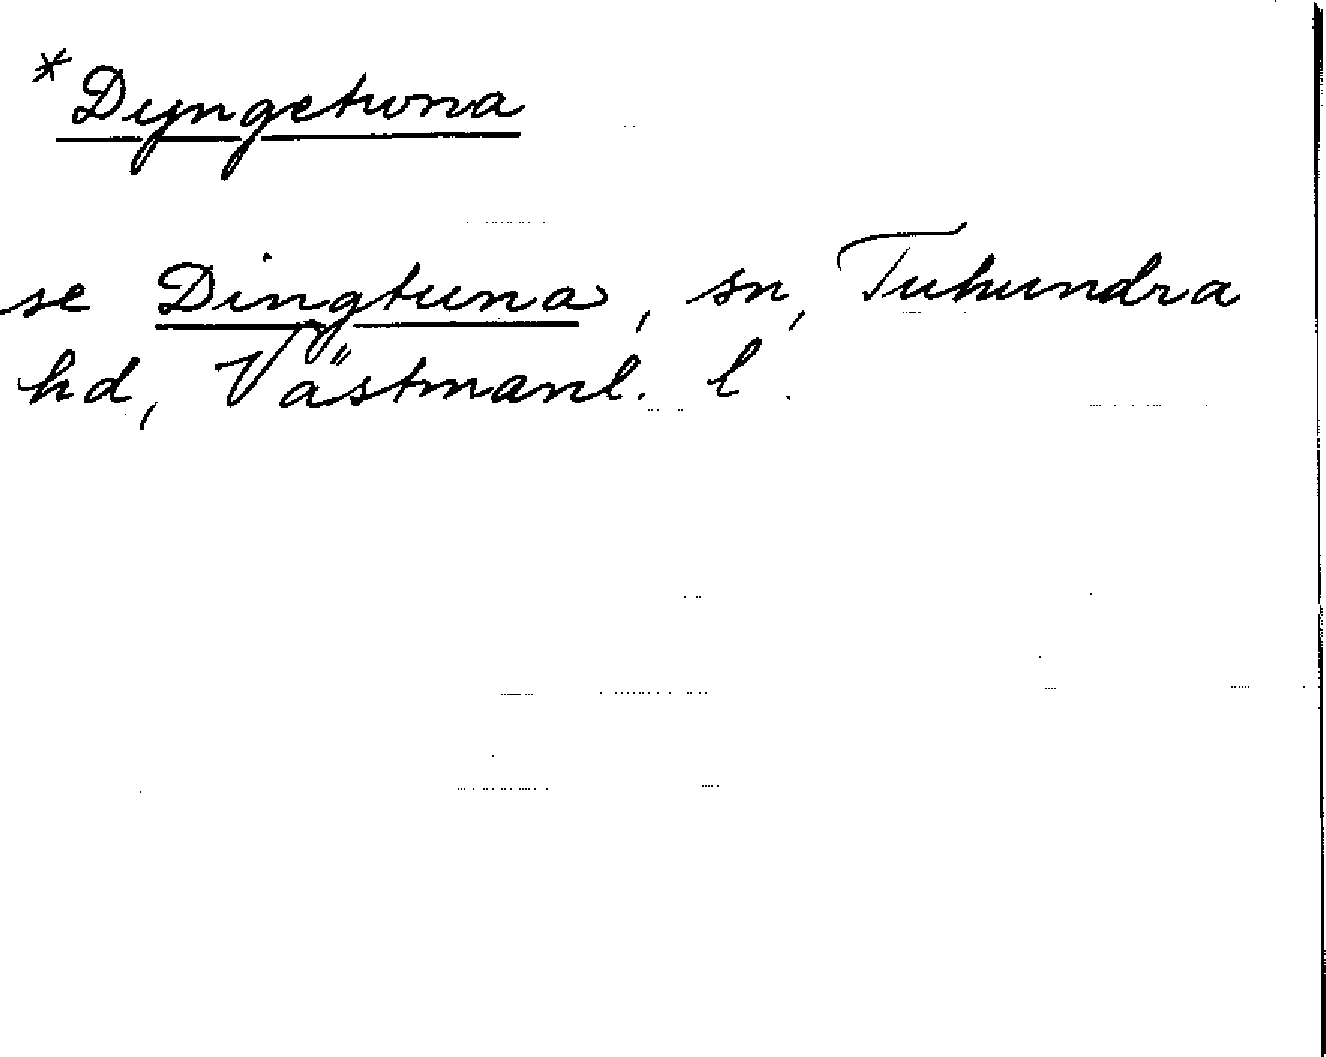 *Dyngetuna
se Dingtuna, sn, Tuhundra
hd, Västmanl. l.